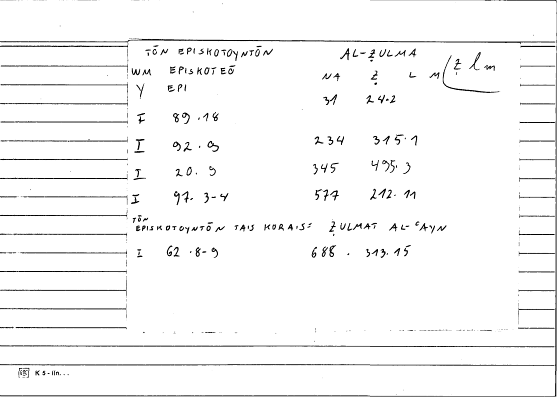 TŌN EPISKOTOYNTŌN AL-ẒULMA
WM EPISKOTEŌ NA Ẓ L M (ẓ l m
Y EPI 31 24.2
I 89.18
I 92.9 234 315.1
I 20.9 345 495.3
I 97.3-4 577 212.11
TŌN
EPISKOTOYNTŌN TAIS KORAIS= ẒULMAT AL-ʿAYN
I 62.8-9 688. 313.15
K 5 - lin. . .